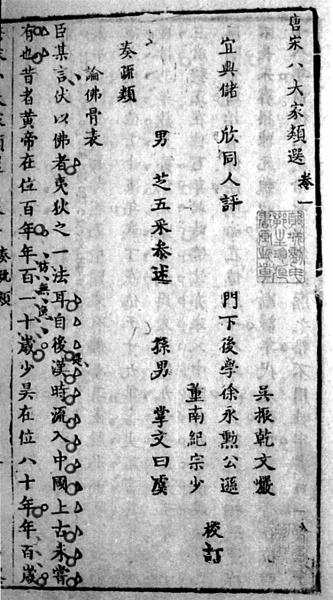 唐宋八大家類選卷一
吳振乾文巖
宜興儲 欣同人評 門下後學徐永勲公遜 校訂
董南紀宗少
男 芝五采參述 孫男 掌文曰虞
奏疏類
論佛骨表
臣某言伏以佛者夷狄之一法耳自後漢時流入中國上古未嘗
有也昔者黃帝在位百年年百一十歲少昊在位八十年年百歲